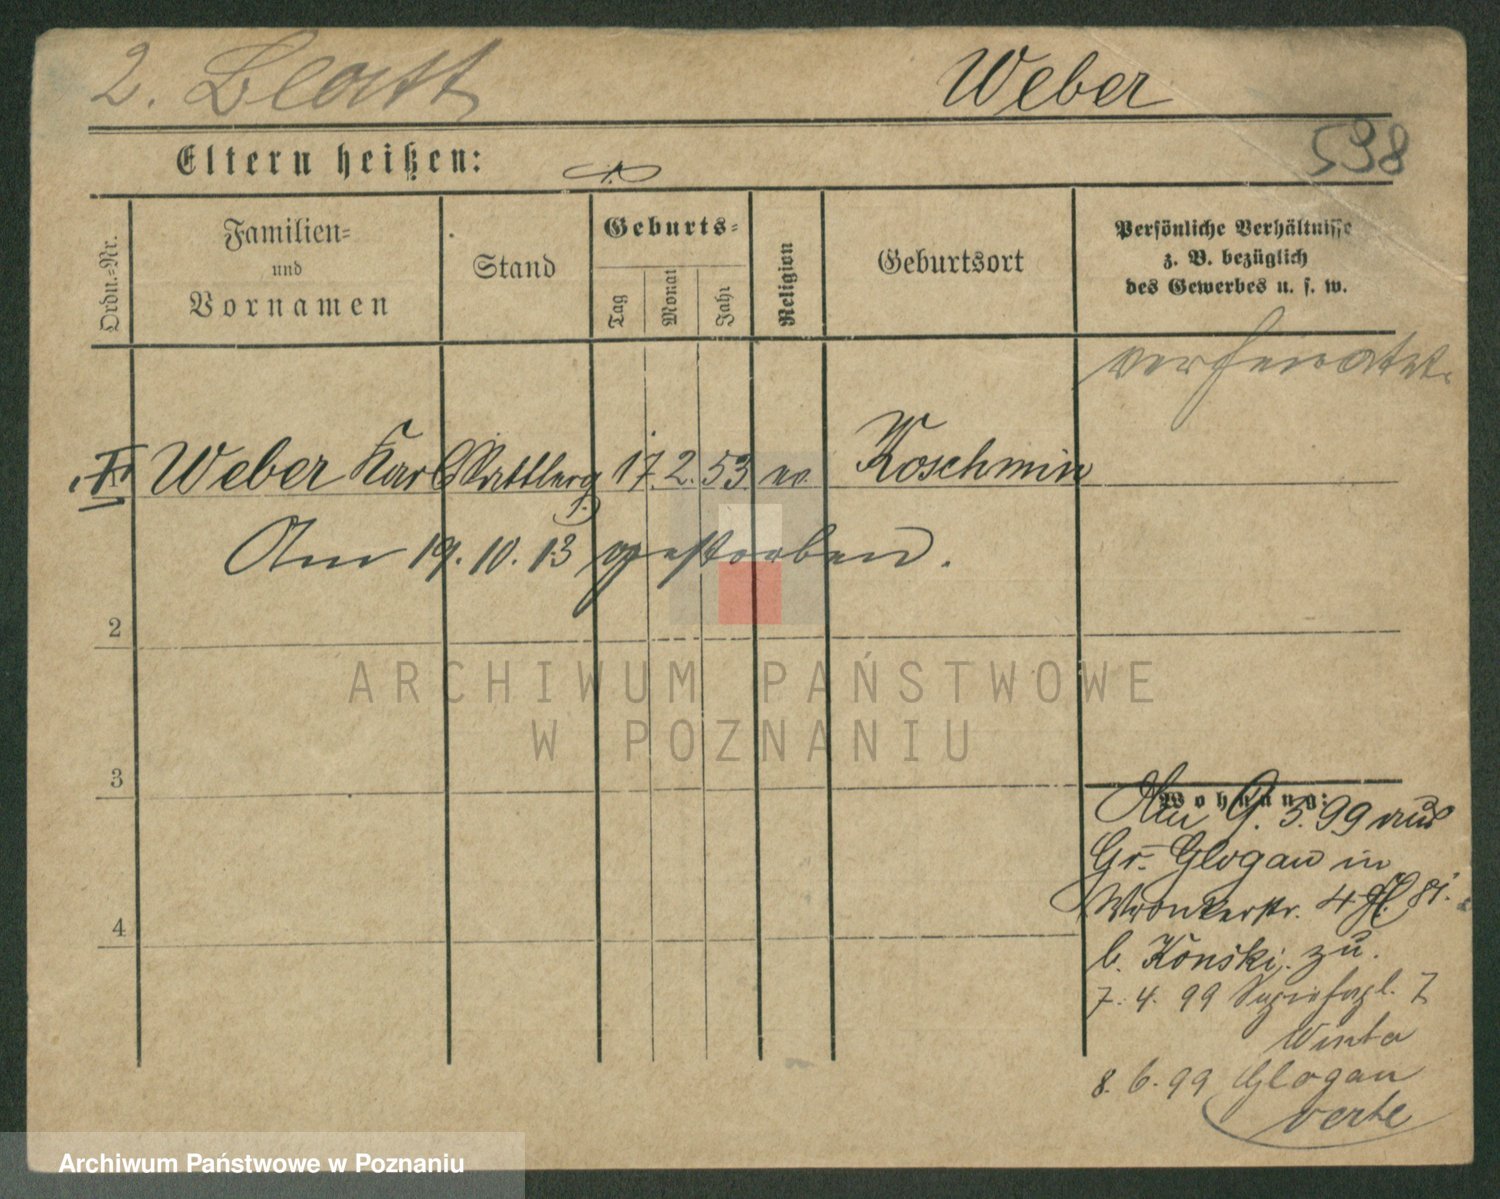 2. Blatt
Weber
538
Eltern heißen:
Ordn.-Nr.
Familien-
und
Vornamen
Stand
Geburts-
Tag
Monat
Jahr
Religion
Geburtsort
Persönliche Verhältnisse
z. B. bezüglich
des Gewerbes u. s. w.
verheiratet.
1 Weber Karl 17. 2. 53 ev. Koschmin
Am 19. 10. 13 gestorben.
2
3
4
Wohnung:
Am 9. 3. 99 aus
Gr. Glogau in
Wronkerstr. 4
b. Konski zu.
7. 4. 99 Sapiehapl. 7
8. 6. 99 Glogau
verte
ARCHIWUM PAŃSTWOWE
W POZNANIU
Archiwum Państwowe w Poznaniu